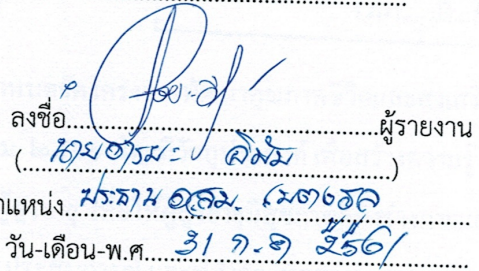 ลงชื่อ........................................ผู้รายงาน
(นายฮารมะ อิมัม)
ำแหน่ง ประธาน อสม.
วัน-เดือน-พ.ศ. 31 ก.ค 2561